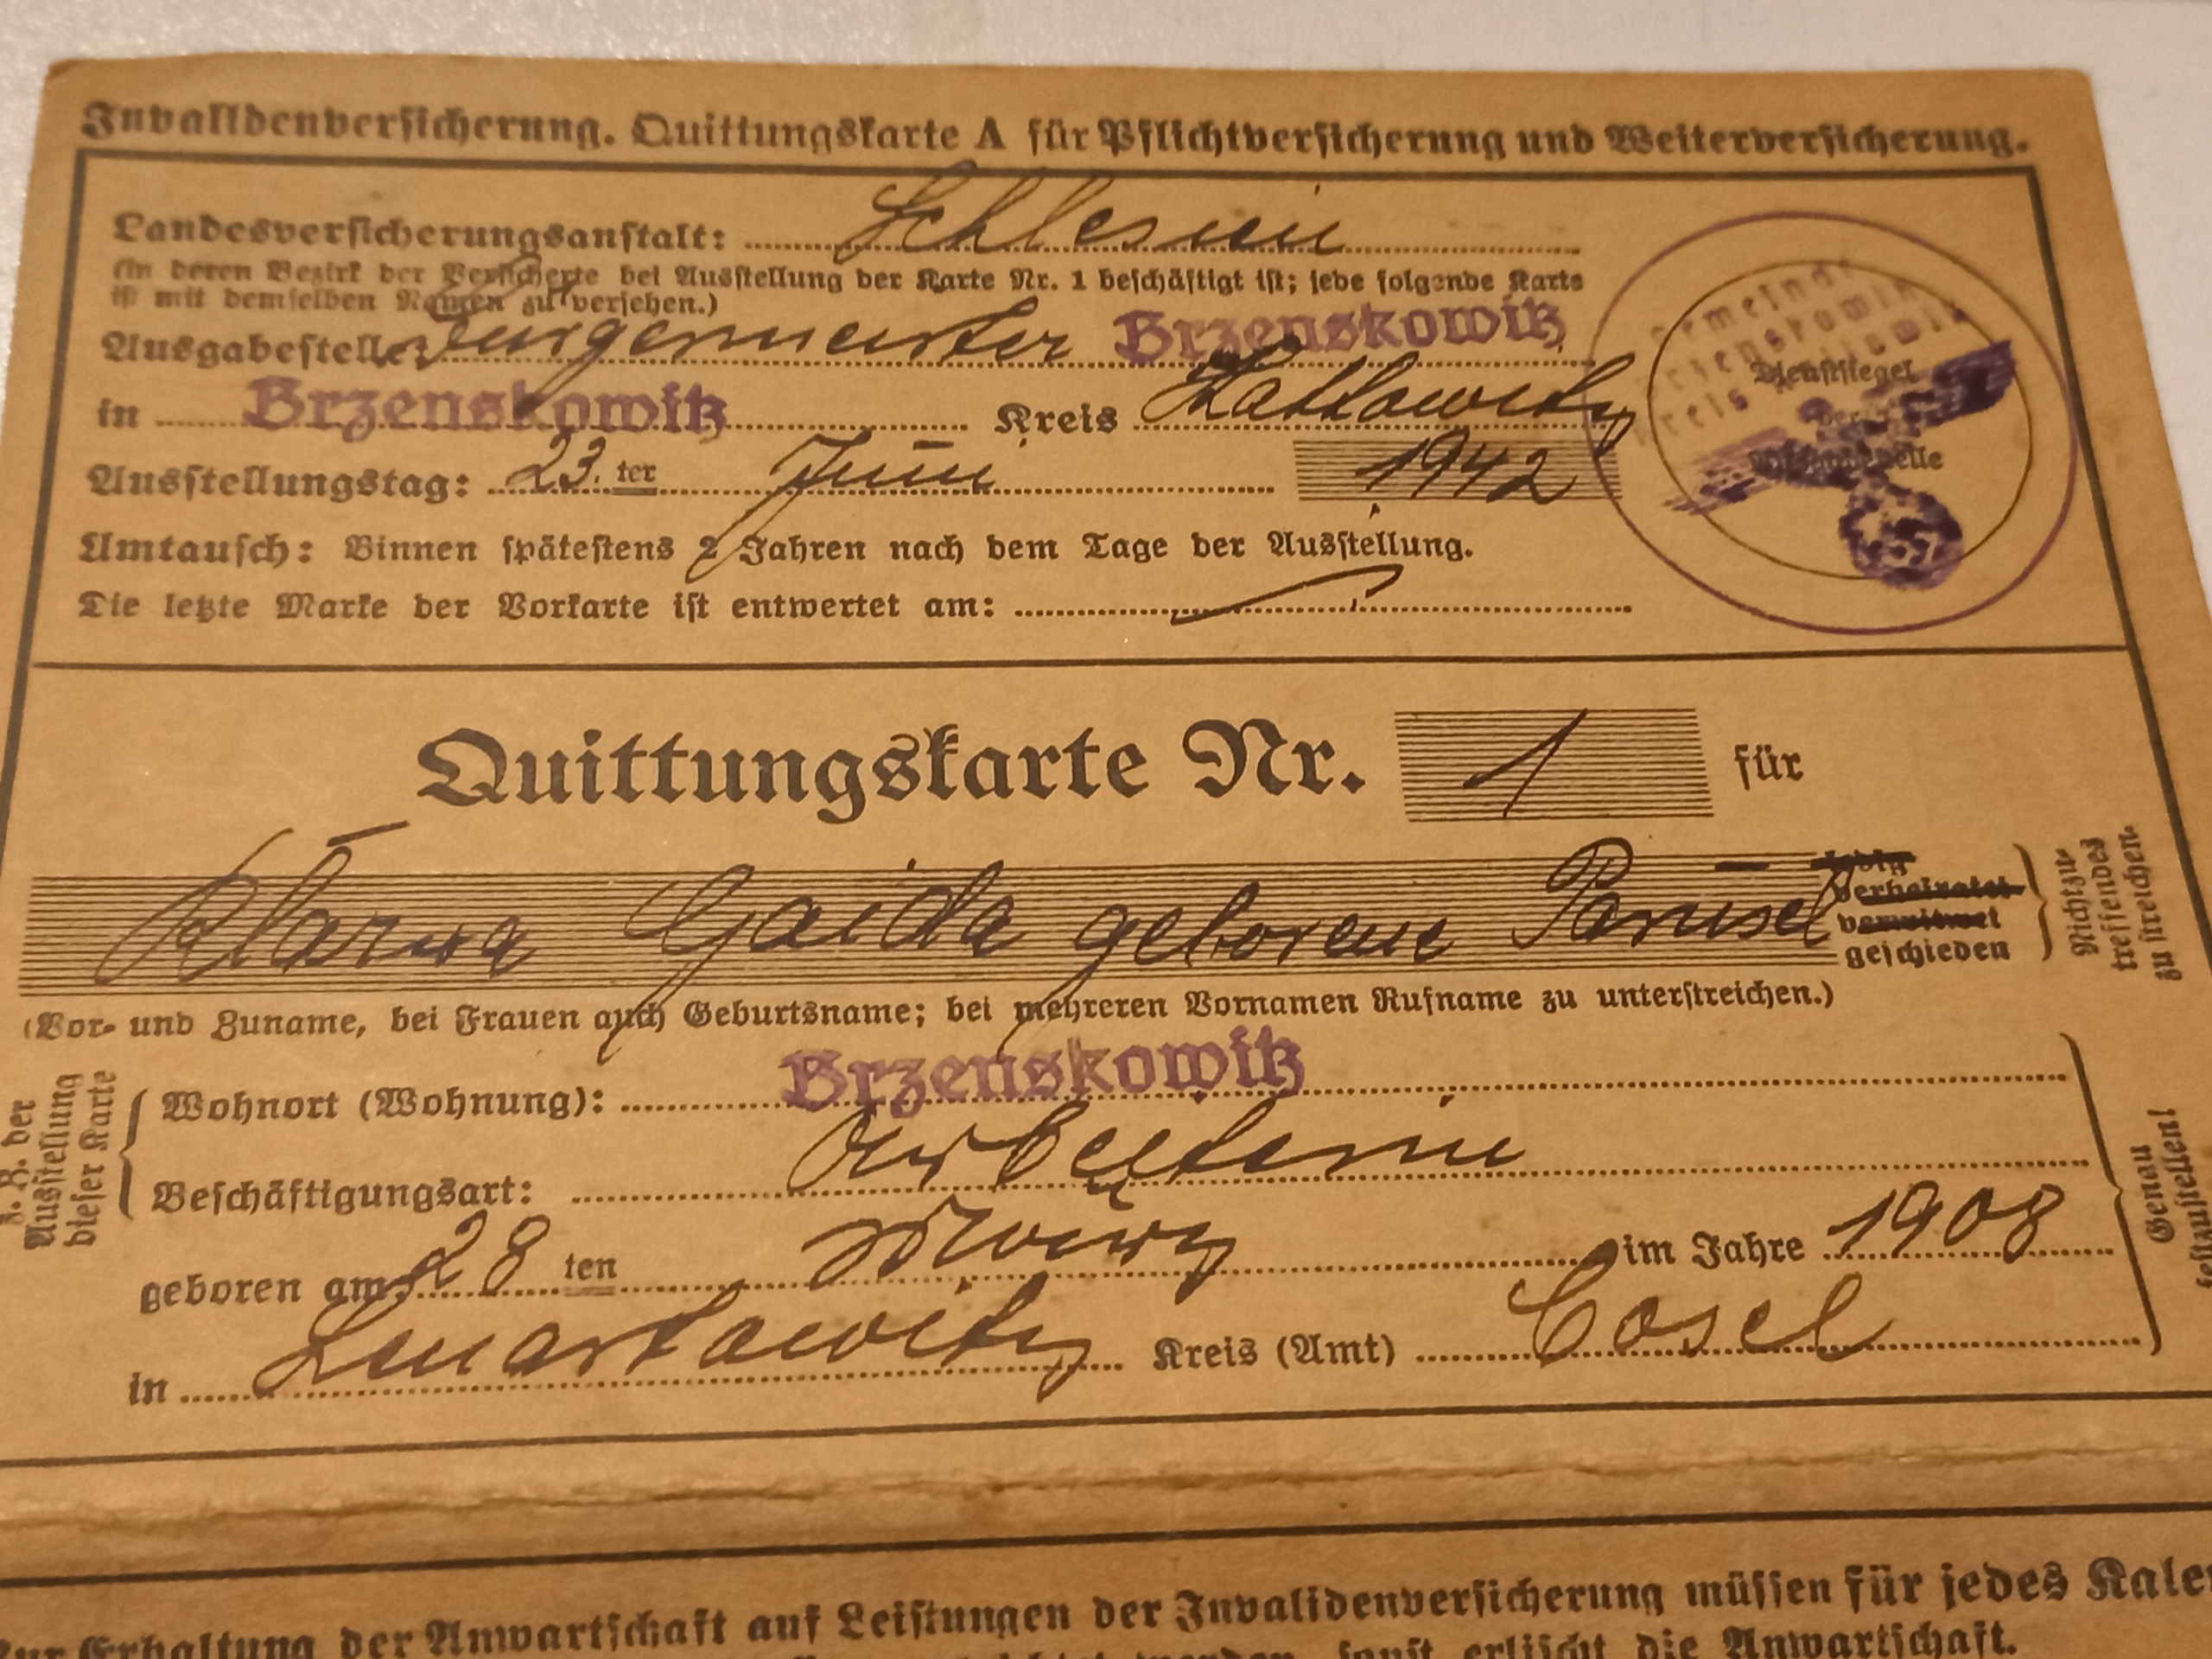 Invalidenversicherung. Quittungskarte A für Pflichtversicherung und Weiterversicherung.
Landesversicherungsanstalt: Schlesien
(in deren Bezirk der Versicherte bei Ausstellung der Karte Nr. 1 beschäftigt ist; jede folgende Karte
ist mit demselben Namen zu versehen.)
Ausgabestelle: Bürgermeister Brzenskowitz
in Brzenskowitz Kreis Kattowitz
Ausstellungstag: 23. ter Juni 1942
Umtausch: Binnen spätestens 2 Jahren nach dem Tage der Ausstellung.
Die letzte Marke der Vorkarte ist entwertet am:
Gemeinde
Brzenskowitz
Kreis Kattowitz
Dienstsiegel
der
Ausgabestelle
Quittungskarte Nr. 1 für
Klara Gaida geborene
ledig
verheiratet
verwitwet
geschieden
Nichtzu-
treffendes
zu streichen.
(Vor- und Zuname, bei Frauen auch Geburtsname; bei mehreren Vornamen Rufname zu unterstreichen.)
z. Z. der
Ausstellung
dieser Karte
Wohnort (Wohnung): Brzenskowitz
Beschäftigungsart: Arbeiterin
geboren am 28 ten März im Jahre 1908
in Kreis (Amt) Cosel
Genau
festzustellen!
Zur Erhaltung der Anwartschaft auf Leistungen der Invalidenversicherung müssen für jedes Kalen
werden, sonst erlischt die Anwartschaft.